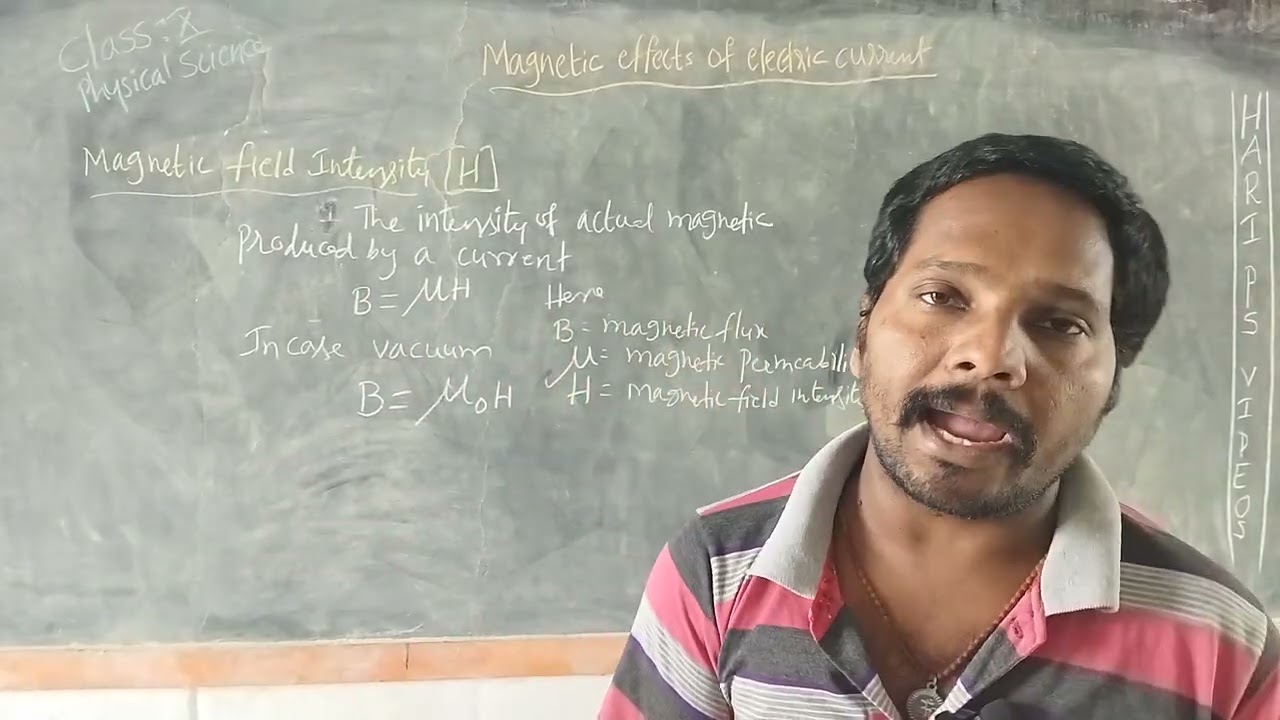 Class: X
Physical Science
Magnetic effects of electric current
Magnetic field Intensity [H]
- The intensity of actual magnetic
Produced by a current
B = μH
Here
B = magnetic flux
In case vacuum
μ = magnetic Permeabili
B = μ₀H
H = magnetic field intensit
HARI PS VIDEOS